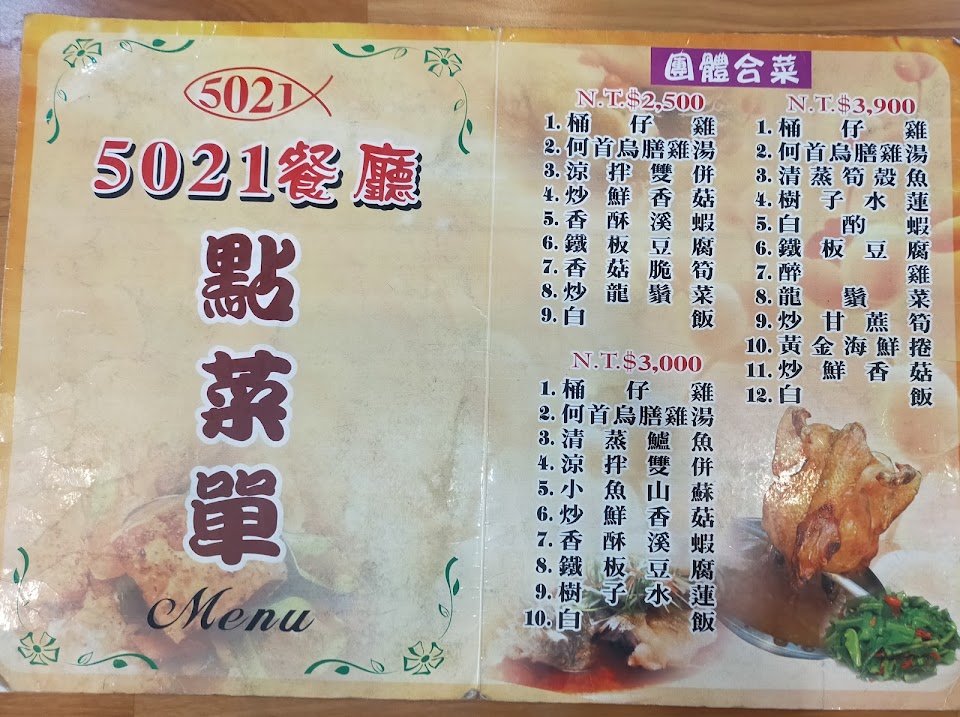 5021
5021餐廳
點菜單
Menu
團體合菜
N.T.$2,500
1.桶仔雞
2.何首烏膳雞湯
3.涼拌雙併
4.炒鮮香菇
5.香酥溪蝦
6.鐵板豆腐
7.香菇脆筍
8.炒龍鬚菜
9.白飯
N.T.$3,000
1.桶仔雞
2.何首烏膳雞湯
3.清蒸鱸魚
4.涼拌雙併
5.小魚山蘇
6.炒鮮香菇
7.香酥溪蝦
8.鐵板豆腐
9.樹子水蓮
10.白飯
N.T.$3,900
1.桶仔雞
2.何首烏膳雞湯
3.清蒸筍殼魚
4.樹子水蓮
5.白酌蝦
6.鐵板豆腐
7.醉雞
8.龍鬚菜
9.炒甘蔗筍
10.黃金海鮮捲
11.炒鮮香菇
12.白飯